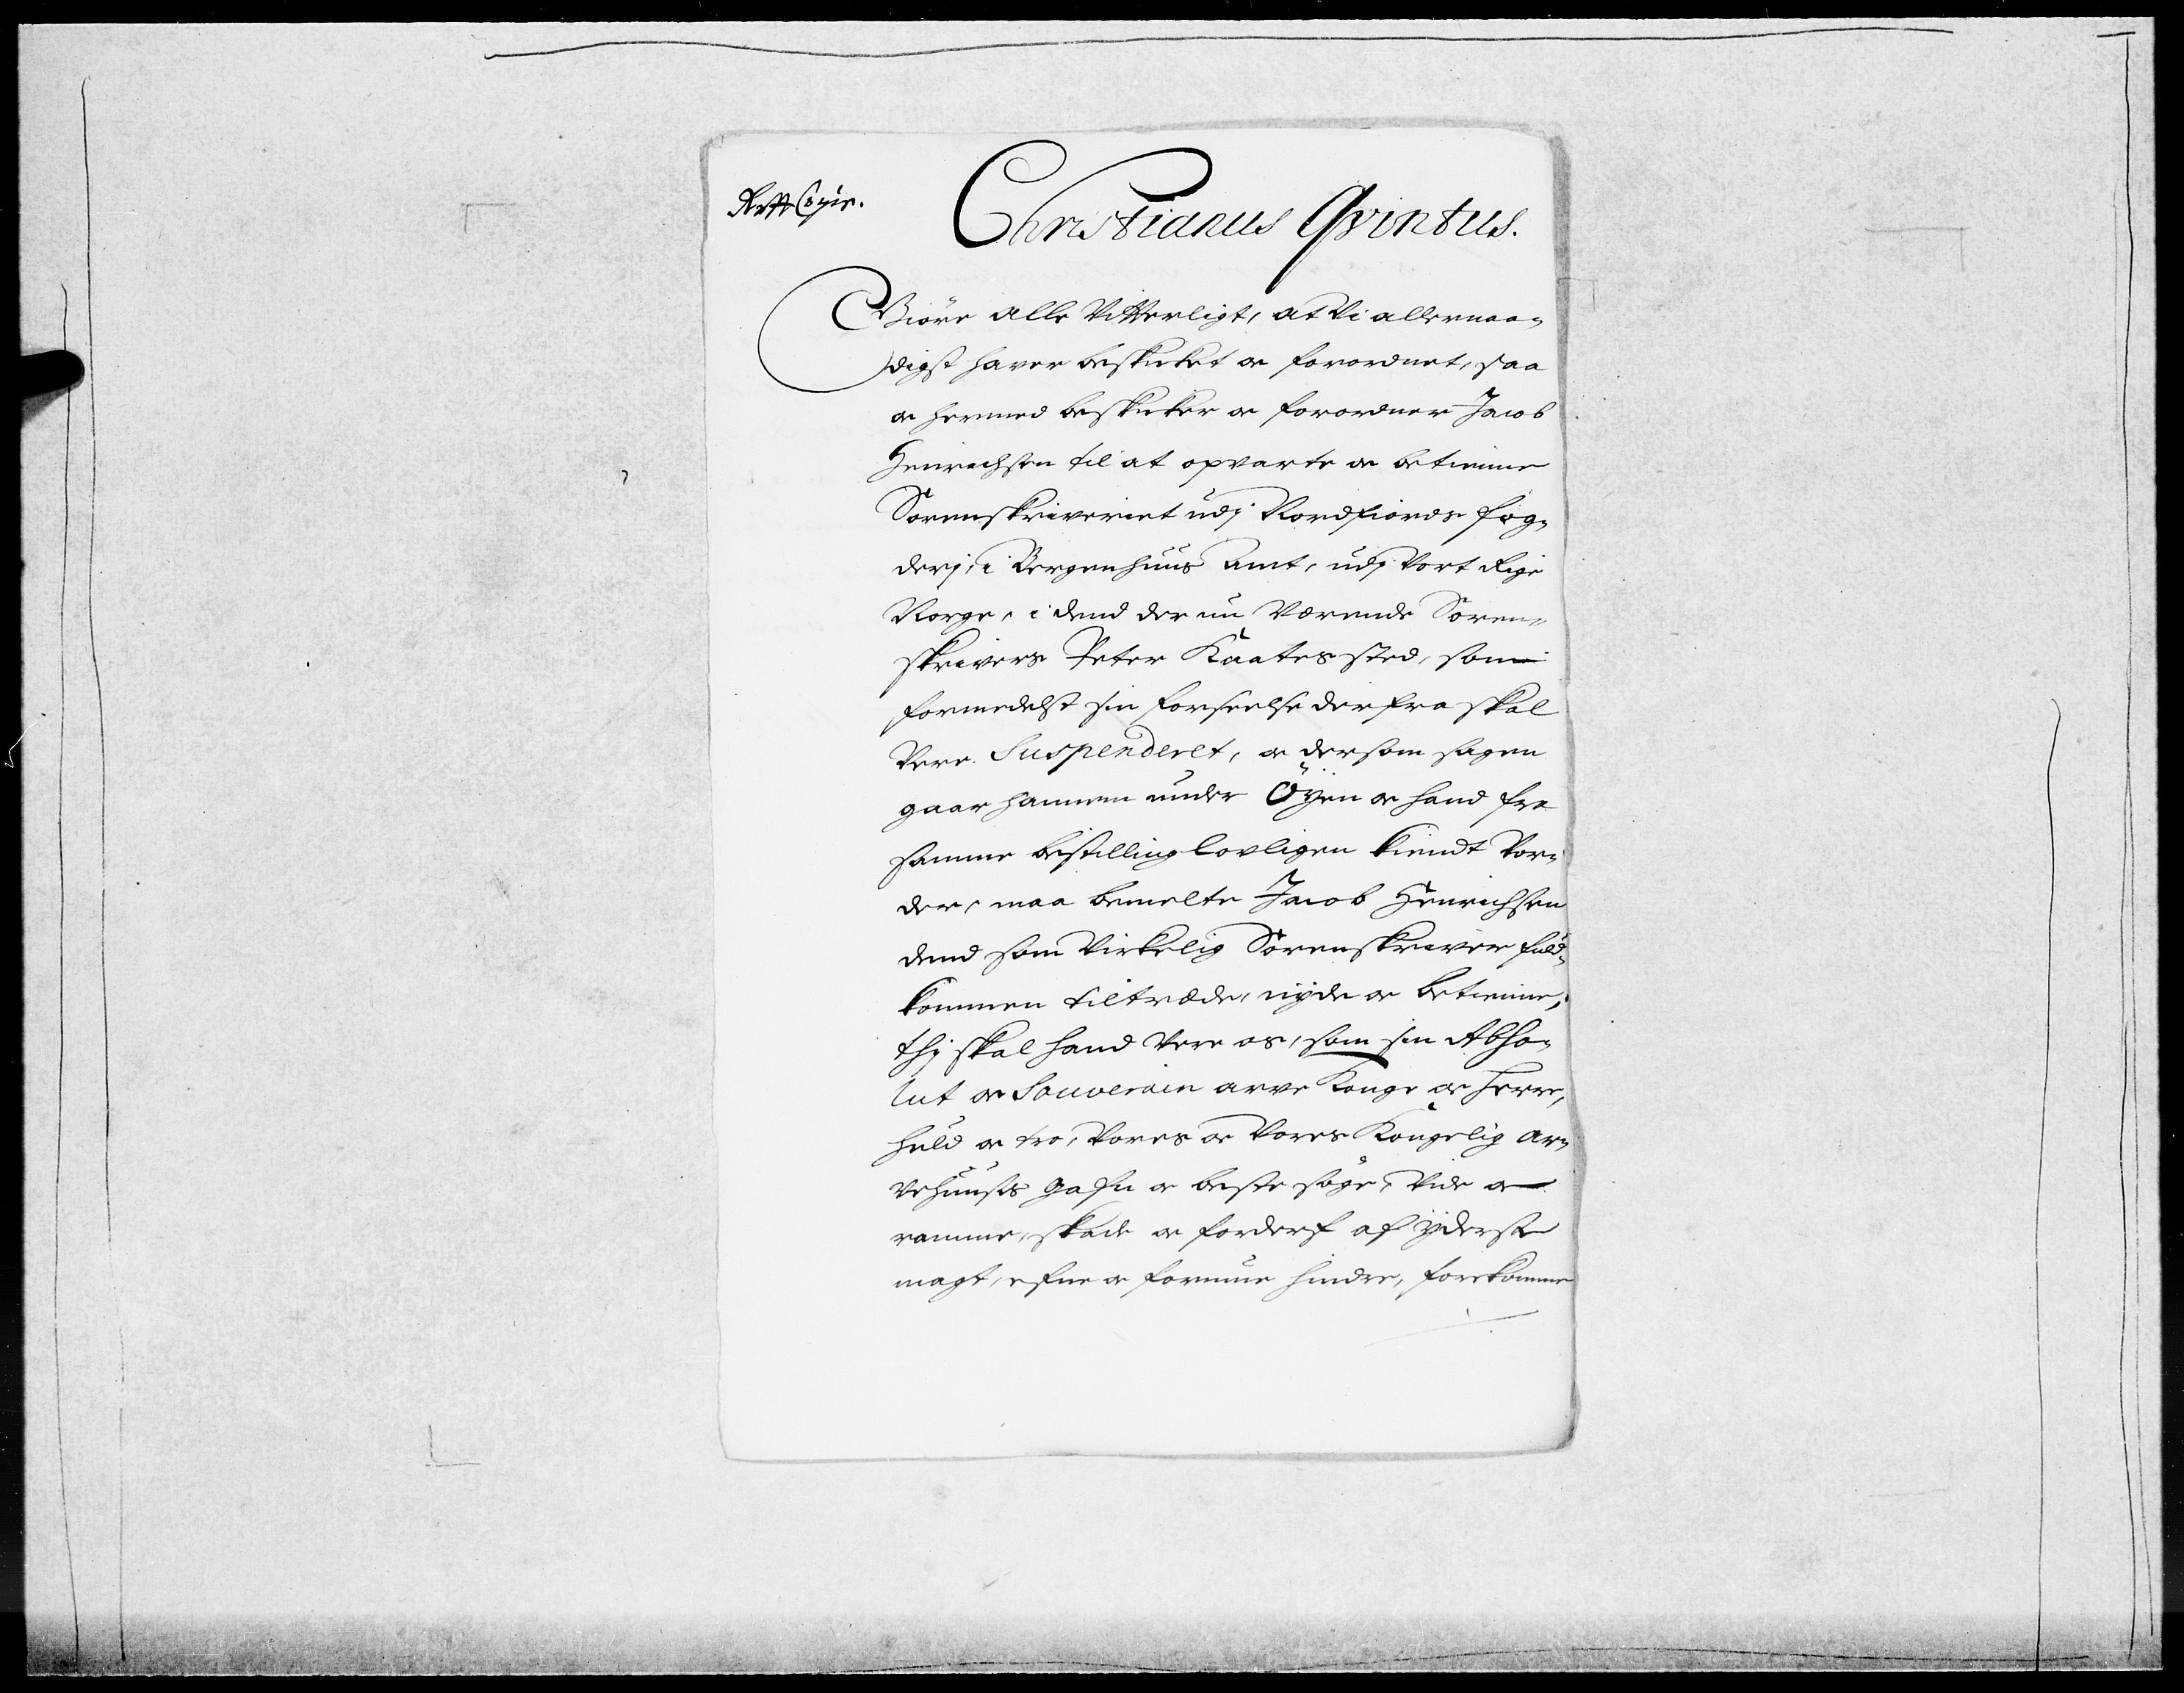 Rett Copie.
Christianus Qvintus.
Giöre alle Vitterligt, at Vi allernaa-
digst haver beskicket oc forordnet, saa
oc hermed beskicker oc forordner Jacob
Henrichsen til at opvarte oc betiene
Sorenskriveriet udj Nordfiords fog-
derj, i Bergenhuus Amt, udj Vort Rige
Norge, i dend der nu Værende Soren-
skrivers Peter Kaates sted, som
formedelst sin forseelse derfra skal
Være Suspenderet, oc dersom sagen
gaar hannem under Öyen oc hand fra
samme bestilling lovligen kiendt Vor-
der, maa bemelte Jacob Henrichsen
dend som Virkelig Sorenskriver fuld-
kommen tiltræde, nyde oc betiene,
thj skal hand Være os, som sin Abso-
lut oc Souverain arve Konge oc Herre,
huld oc tro, Vores oc Vores Kongelig Ar-
vehuuses gafn oc beste söge, Vide oc
ramme, skade oc forderf af yderste
magt, efne oc formue hindre, forekomme